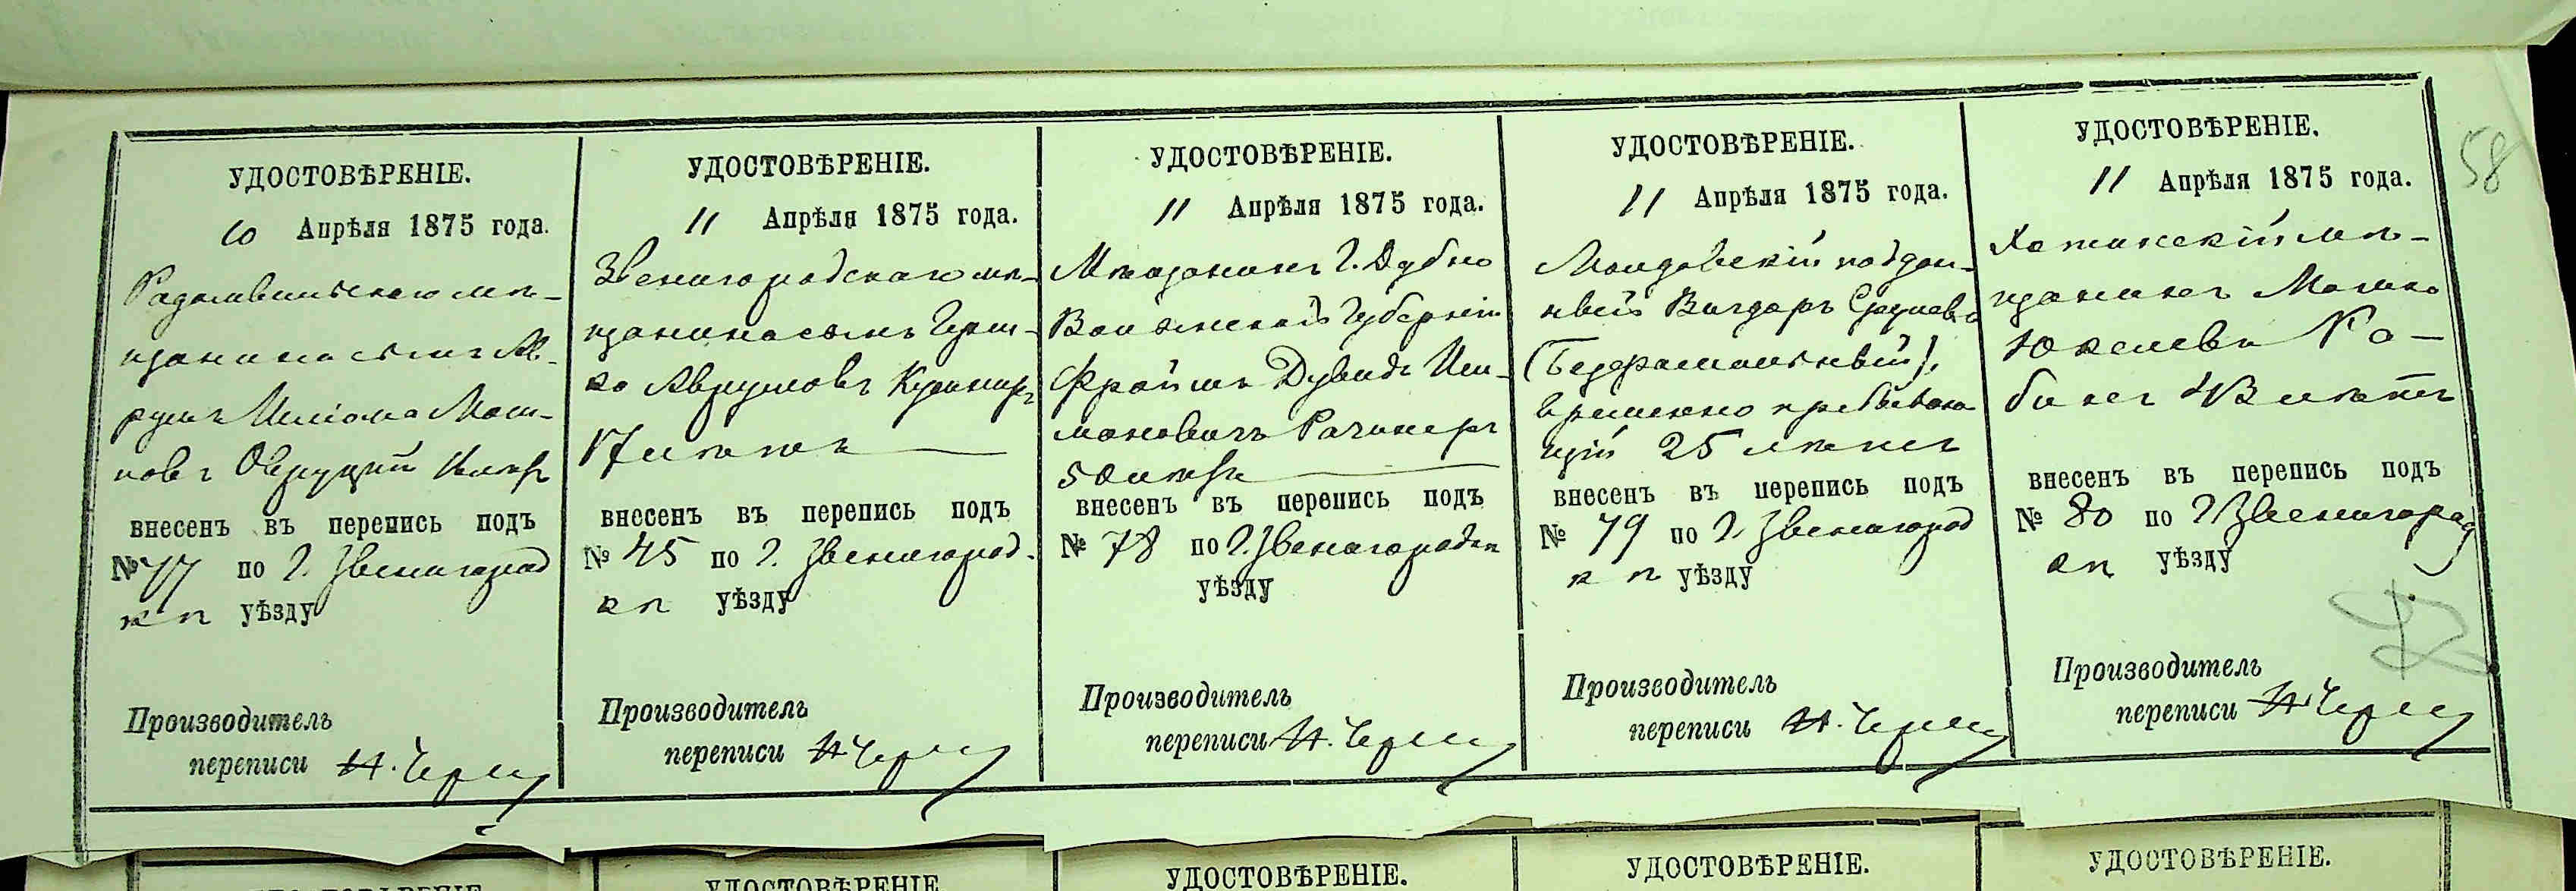 58
УДОСТОВѢРЕНІЕ.
10 Апрѣля 1875 года.
Радомысльскаго мѣ-
щанина сынъ Ав-
румъ Шліома Мош-
ковъ Овруцкій
внесенъ въ перепись подъ
№ 77 по г. Звенигород
кѣ уѣзду
Производитель
переписи
УДОСТОВѢРЕНІЕ.
11 Апрѣля 1875 года.
Звенигородскаго мѣ-
щанина сынъ Герш-
ко Аврумовъ Кушниръ
17 лѣтъ
внесенъ въ перепись подъ
№ 45 по г. Звенигород-
кѣ уѣзду
Производитель
переписи
УДОСТОВѢРЕНІЕ.
11 Апрѣля 1875 года.
Мѣщанинъ г. Дубно
Волынской Губерніи
Фроимъ Дувидъ
мановичъ Рачинеръ
50 лѣтъ
внесенъ въ перепись подъ
№ 78 по г. Звенигородкѣ
уѣзду
Производитель
переписи
УДОСТОВѢРЕНІЕ.
11 Апрѣля 1875 года.
Молдавскій поддан-
ный Вигдоръ
временно пребываю
щій 25 лѣтъ
внесенъ въ перепись подъ
№ 79 по г. Звенигород
кѣ уѣзду
Производитель
переписи
УДОСТОВѢРЕНІЕ.
11 Апрѣля 1875 года.
Хотинскій мѣ-
щанинъ Мошко
Юкелевъ
внесенъ въ перепись подъ
№ 80 по г. Звенигород
кѣ уѣзду
Производитель
переписи
УДОСТОВѢРЕНІЕ
УДОСТОВѢРЕНІЕ.
УДОСТОВѢРЕНІЕ.
УДОСТОВѢРЕНІЕ.